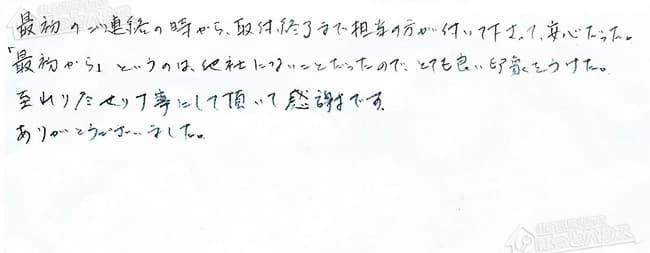 最初のご連絡の時から、取付終了まで担当の方が付いて下さって、安心だった。
「最初から」というのは、他社にないことだったので、とても良い印象をうけた。
至れりたせり丁寧にして頂いて感謝です。
ありがとうございました。